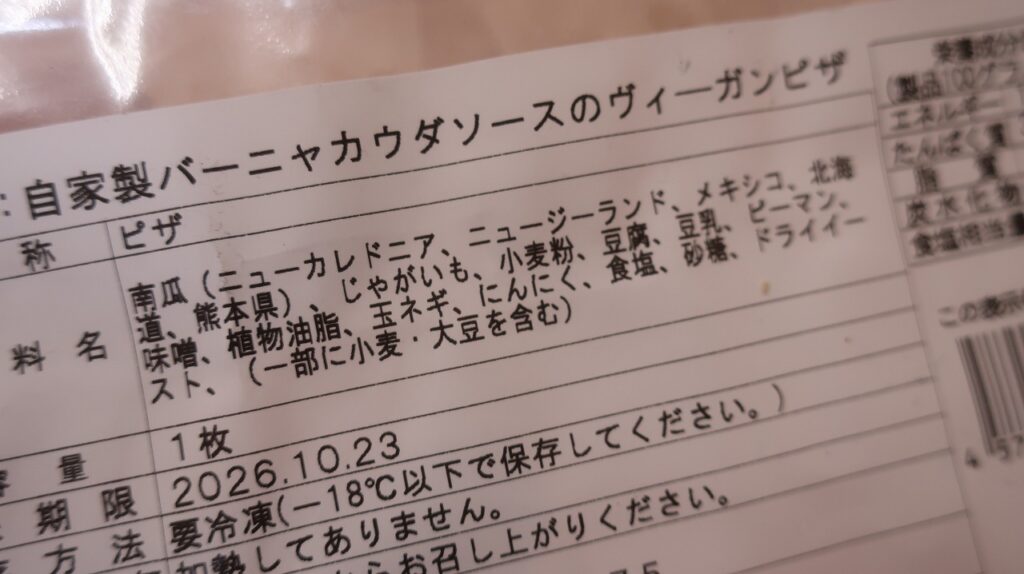 :自家製バーニャカウダソースのヴィーガンピザ
称 ピザ
料名 南瓜(ニューカレドニア、ニュージーランド、メキシコ、北海
道、熊本県)、じゃがいも、小麦粉、豆腐、豆乳、ピーマン、
味噌、植物油脂、玉ネギ、にんにく、食塩、砂糖、ドライイー
スト、(一部に小麦・大豆を含む)
容量 1枚
期限 2026.10.23
方法 要冷凍(-18℃以下で保存してください。)
加熱してありません。
からお召し上がりください。
栄養成分
(製品100グラ
エネルギー
たんぱく質
脂質
炭水化物
食塩相当量
この表示
4 57